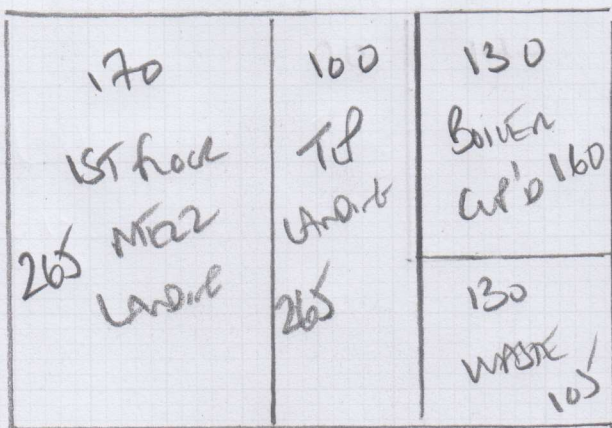 170
1ST FLOOR
MEZZ
265
LANDING
100
TOP
LANDING
265
130
BOILER
CUP'D 160
130
WASTE
105